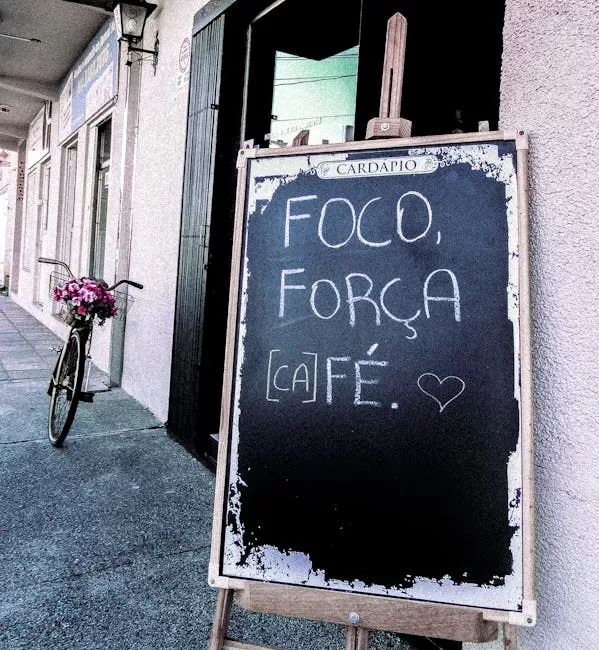 CARDÁPIO
FOCO,
FORÇA
[CA]FÉ.